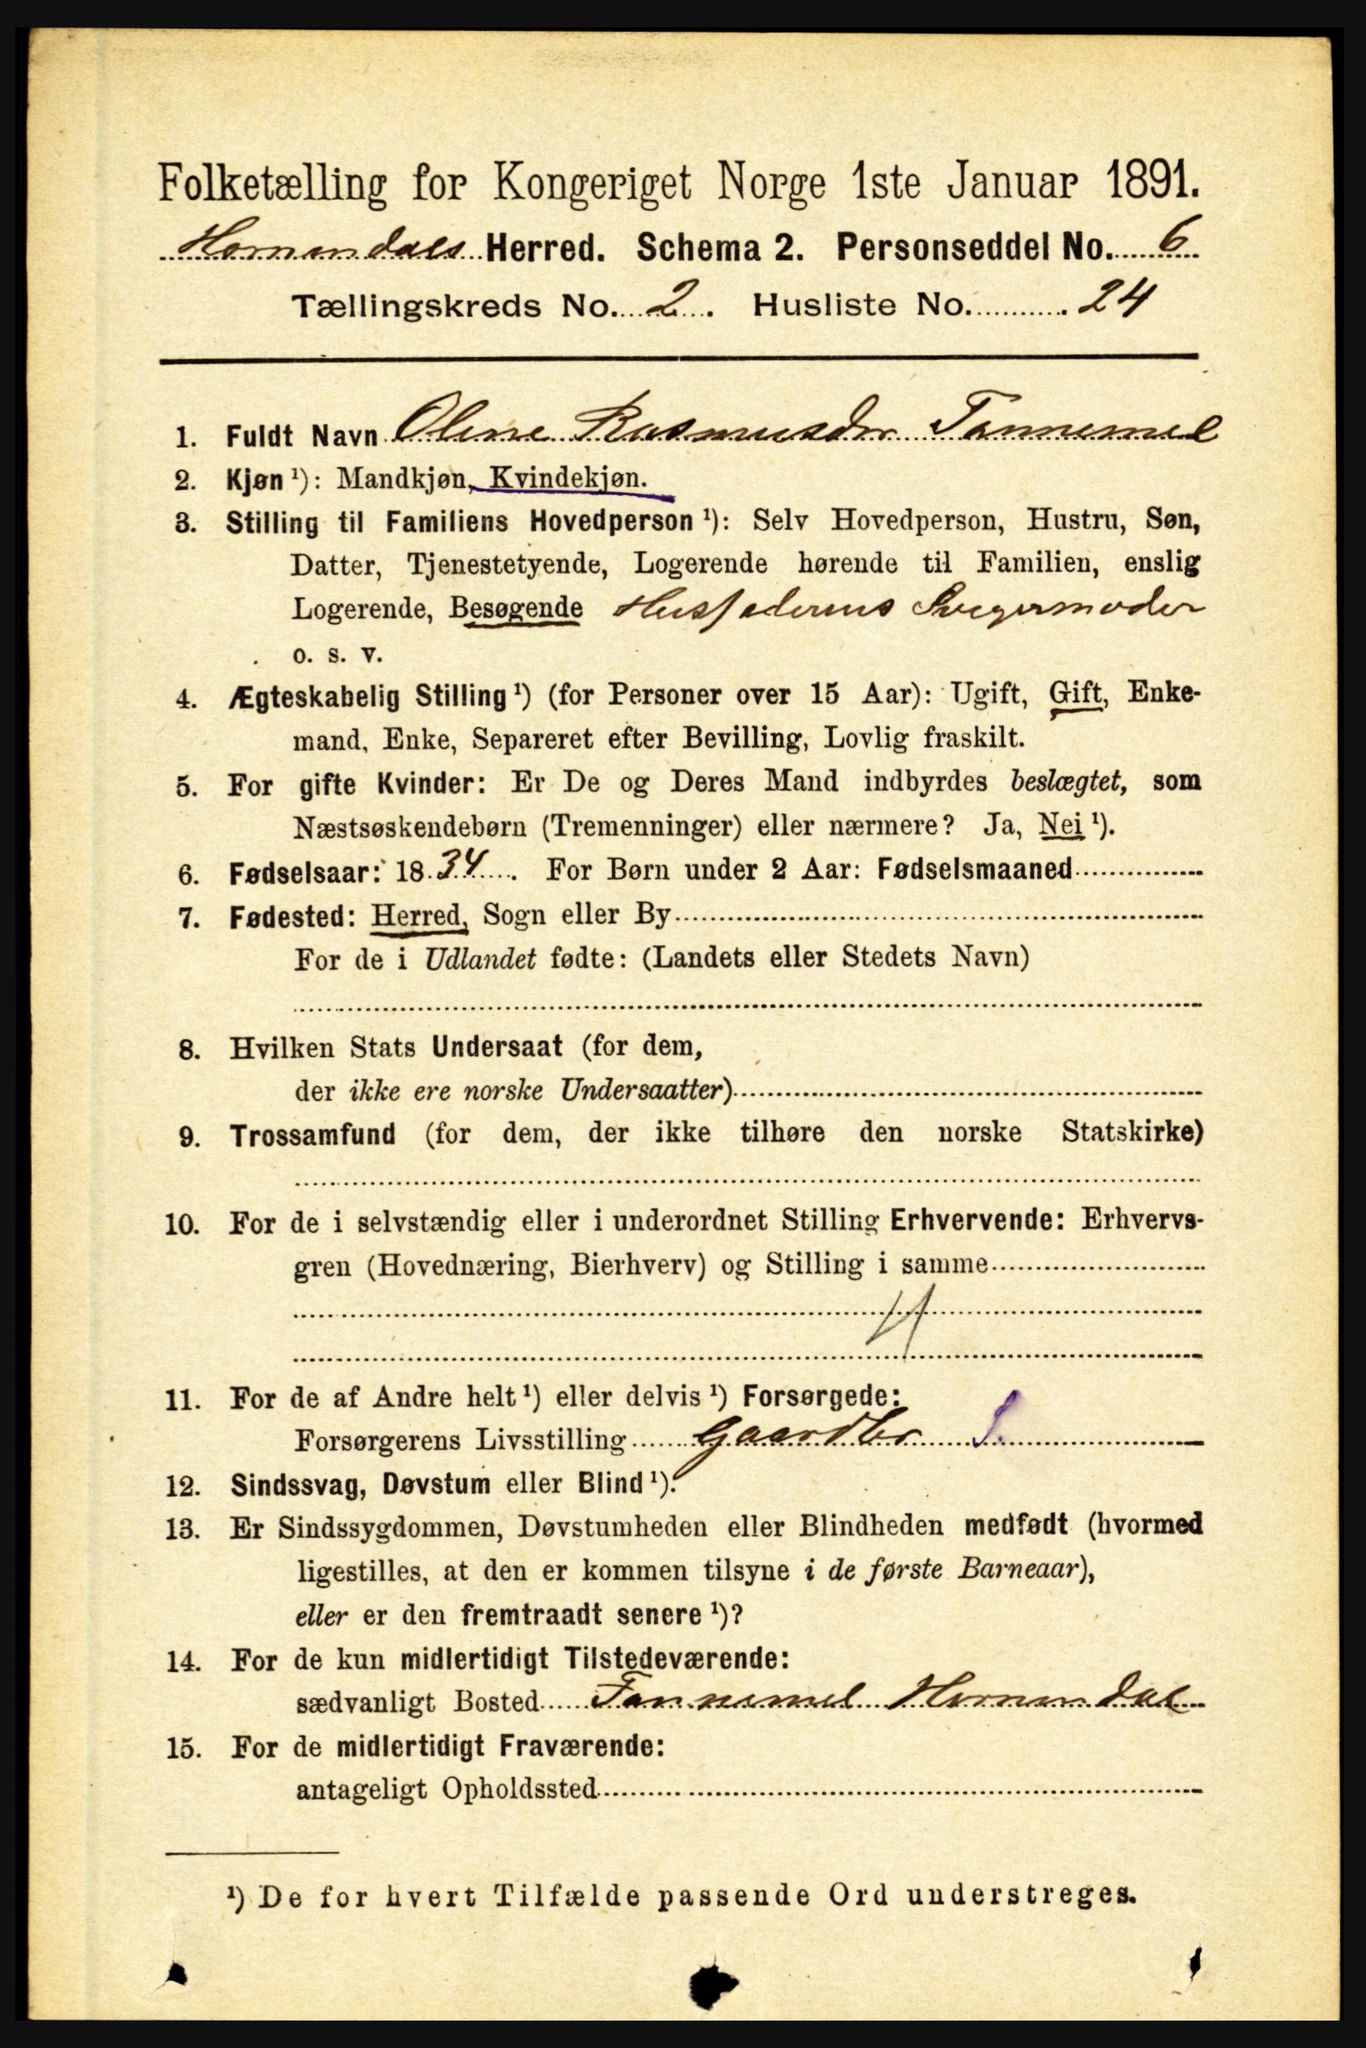 Folketælling for Kongeriget Norge 1ste Januar 1891.
Hornindals Herred. Schema 2. Personseddel No. 6
Tællingskreds No. 2. Husliste No. 24
1. Fuldt Navn Olene Rasmusdtr Tannemel
2. Kjøn ¹): Mandkjøn, Kvindekjøn.
3. Stilling til Familiens Hovedperson ¹): Selv Hovedperson, Hustru, Søn,
Datter, Tjenestetyende, Logerende hørende til Familien, enslig
Logerende, Besøgende Husfaderens Svigermoder
o. s. v.
4. Ægteskabelig Stilling ¹) (for Personer over 15 Aar): Ugift, Gift, Enke-
mand, Enke, Separeret efter Bevilling, Lovlig fraskilt.
5. For gifte Kvinder: Er De og Deres Mand indbyrdes beslægtet, som
Næstsøskendebørn (Tremenninger) eller nærmere? Ja, Nei ¹).
6. Fødselsaar: 1834. For Børn under 2 Aar: Fødselsmaaned
7. Fødested: Herred, Sogn eller By
For de i Udlandet fødte: (Landets eller Stedets Navn)
8. Hvilken Stats Undersaat (for dem,
der ikke ere norske Undersaatter)
9. Trossamfund (for dem, der ikke tilhøre den norske Statskirke)
10. For de i selvstændig eller i underordnet Stilling Erhvervende: Erhvervs-
gren (Hovednæring, Bierhverv) og Stilling i samme
11. For de af Andre helt ¹) eller delvis ¹) Forsørgede:
Forsørgerens Livsstilling Gaardbr S.
12. Sindssvag, Døvstum eller Blind ¹).
13. Er Sindssygdommen, Døvstumheden eller Blindheden medfødt (hvormed
ligestilles, at den er kommen tilsyne i de første Barneaar),
eller er den fremtraadt senere ¹)?
14. For de kun midlertidigt Tilstedeværende:
sædvanligt Bosted Tannemel Hornindal
15. For de midlertidigt Fraværende:
antageligt Opholdssted
¹) De for hvert Tilfælde passende Ord understreges.